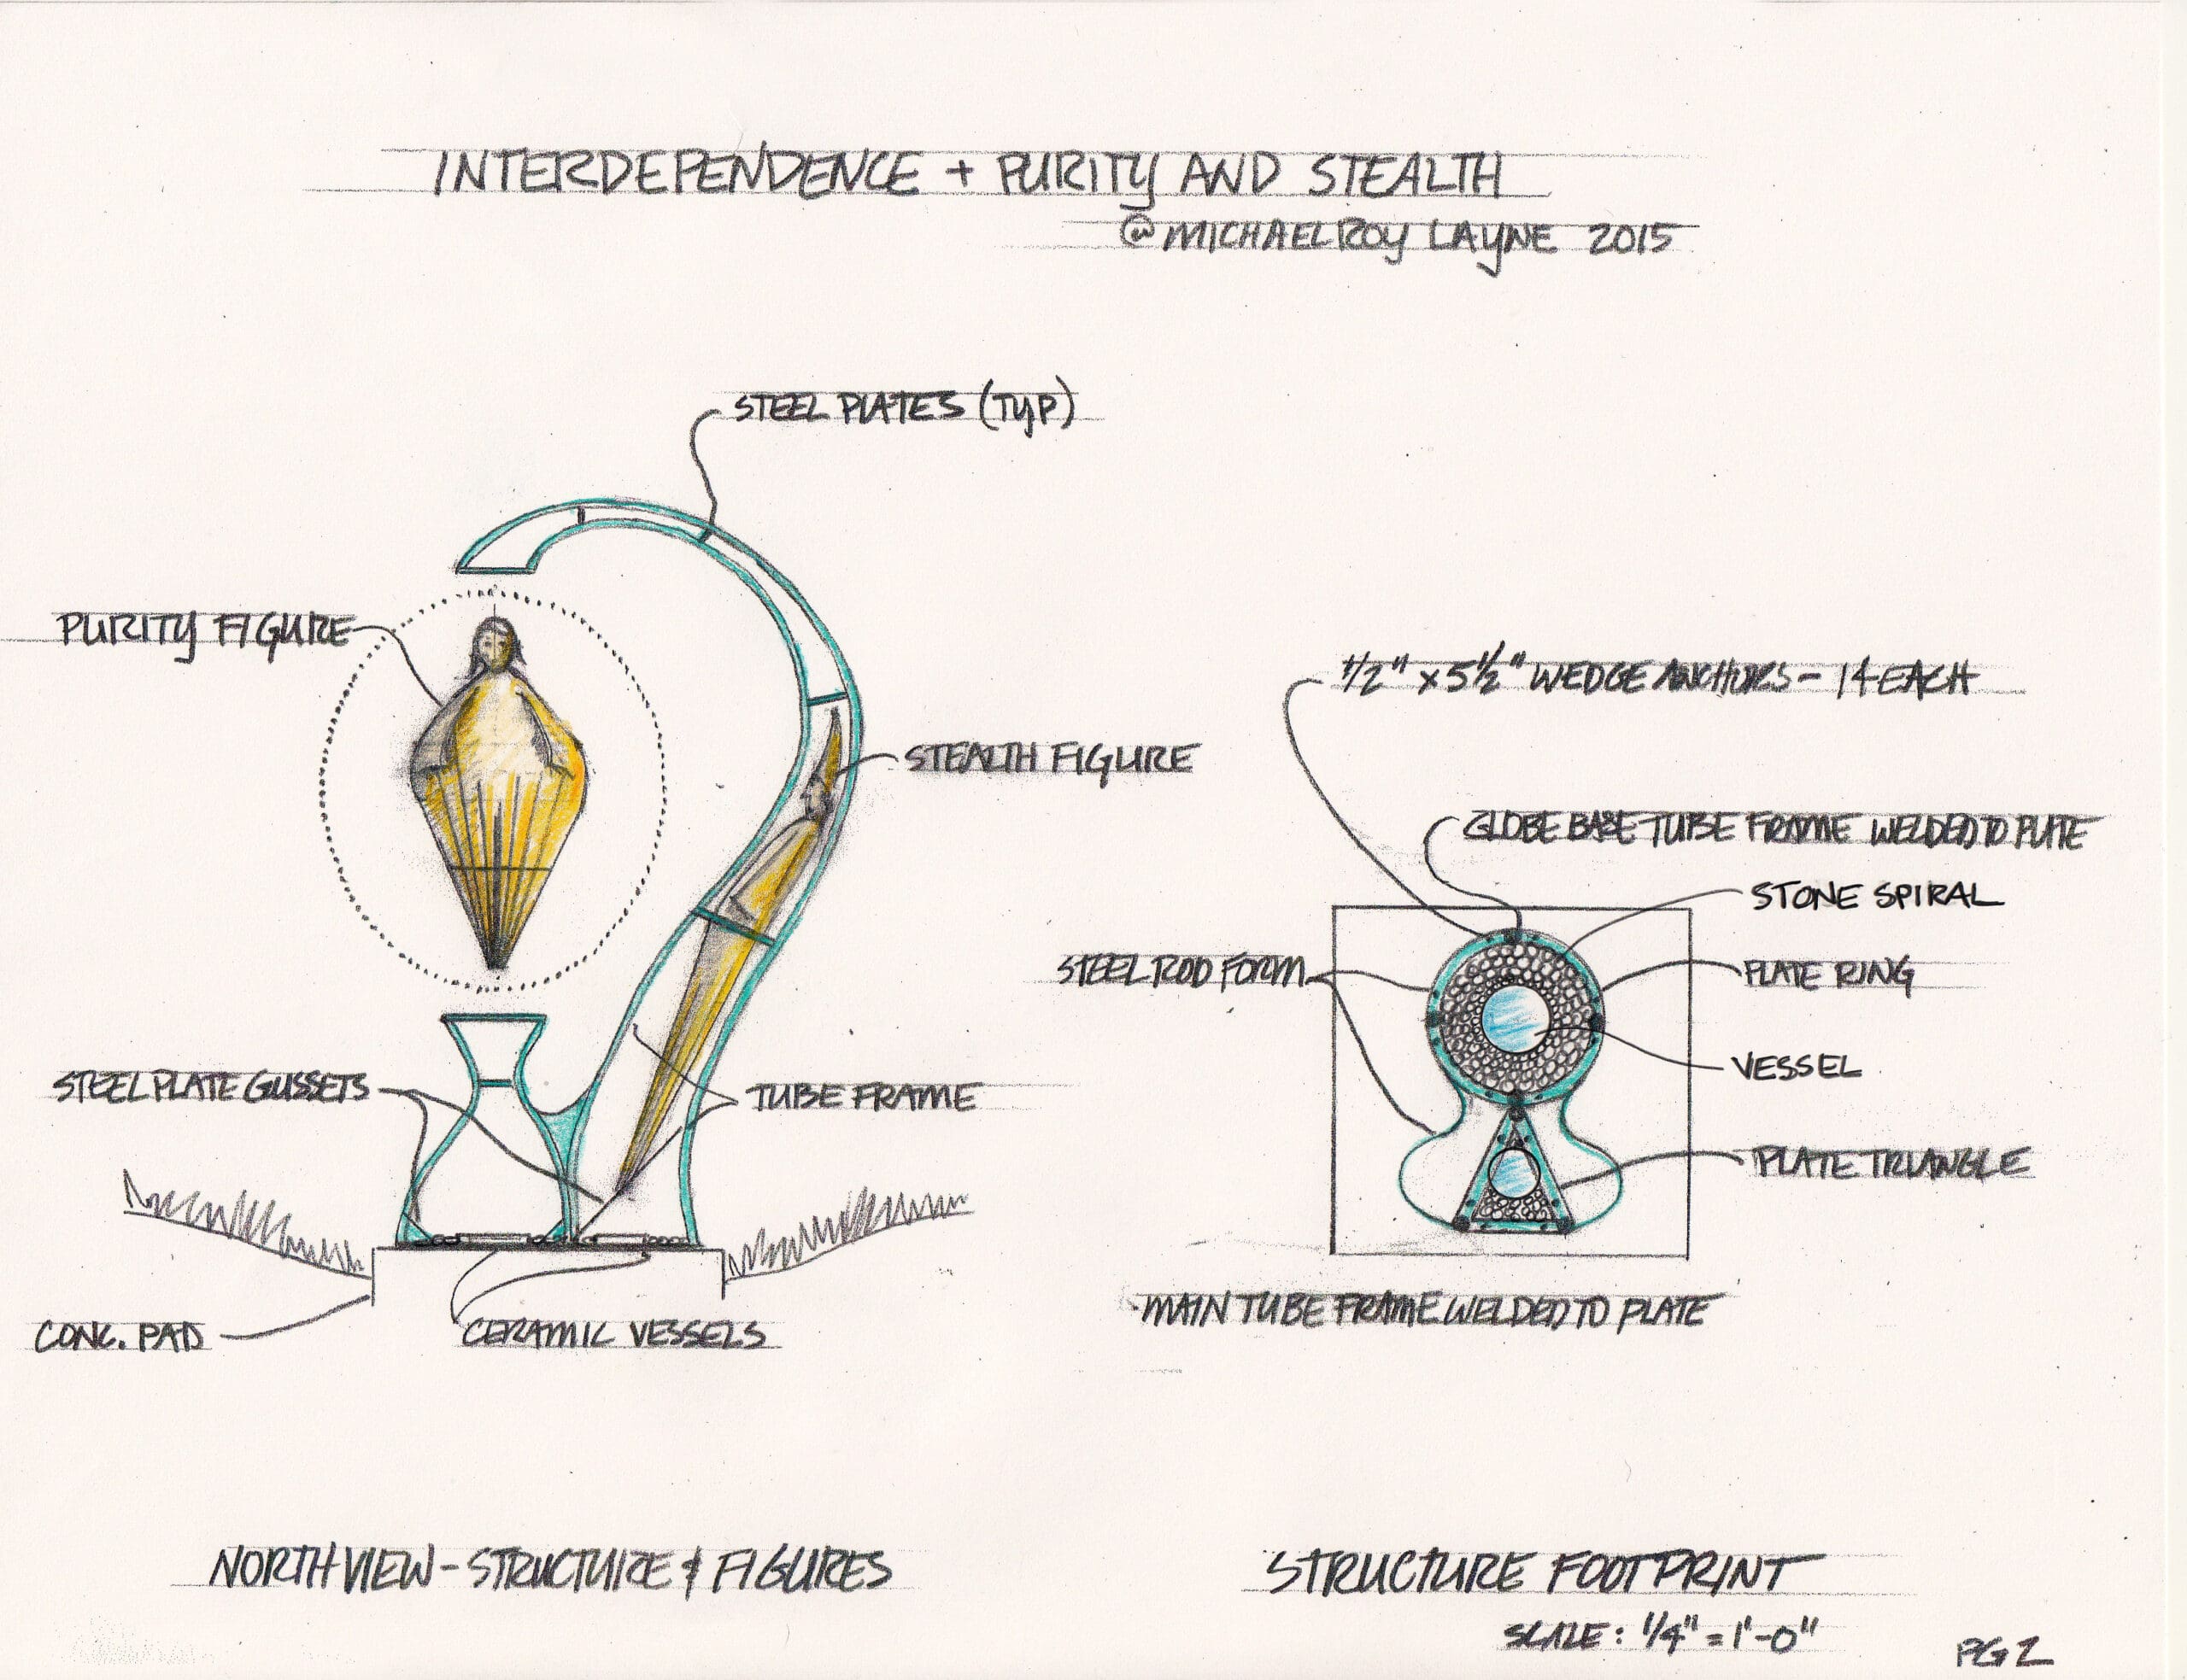 INTERDEPENDENCE + PURITY AND STEALTH
© MICHAEL ROY LAYNE 2015
STEEL PLATES (TYP)
PURITY FIGURE
STEALTH FIGURE
STEEL PLATE GUSSETS
TUBE FRAME
CONC. PAD
CERAMIC VESSELS
NORTH VIEW - STRUCTURE & FIGURES
1/2" x 5 1/2" WEDGE ANCHORS - 14 EACH
GLOBE BASE TUBE FRAME WELDED TO PLATE
STONE SPIRAL
STEEL ROD FORM
PLATE RING
VESSEL
PLATE TRIANGLE
MAIN TUBE FRAME WELDED TO PLATE
STRUCTURE FOOTPRINT
SCALE: 1/4" = 1'-0"
PG 2